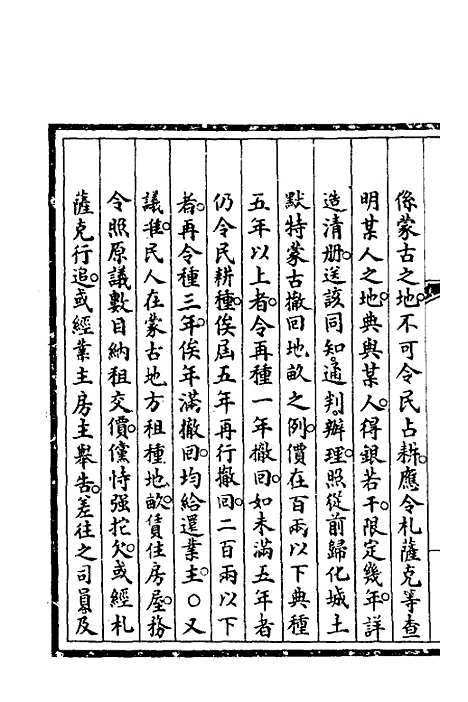 係蒙古之地。不可令民占耕。應令札薩克等查
明某人之地。典與某人。得銀若干。限定幾年。詳
造清册。送該同知。通判。辦理。照從前歸化城土
默特蒙古撤回地畝之例。價在百兩以下典種
五年以上者。令再種一年撤回。如未滿五年者
仍令民耕種。俟屆五年再行撤回。二百兩以下
者。再令種三年。俟年滿撤回。均給還業主。○又
議准。民人在蒙古地方租種地畝。賃住房屋。務
令照原議數目納租交價。儻恃强拕欠。或經札
薩克行追。或經業主房主舉告。差往之司員及